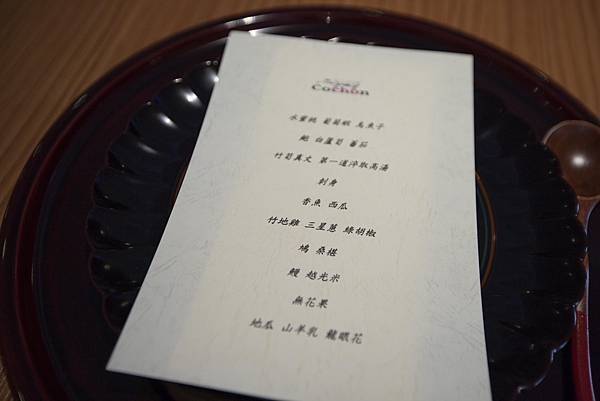 Cochon
水蜜桃 葡萄蝦 烏魚子
鮑 白蘆筍 蕃茄
竹筍真丈 第一道淬取高湯
刺身
香魚 西瓜
竹地雞 三星蔥 綠胡椒
鳩 桑椹
鰻 越光米
無花果
地瓜 山羊乳 龍眼花